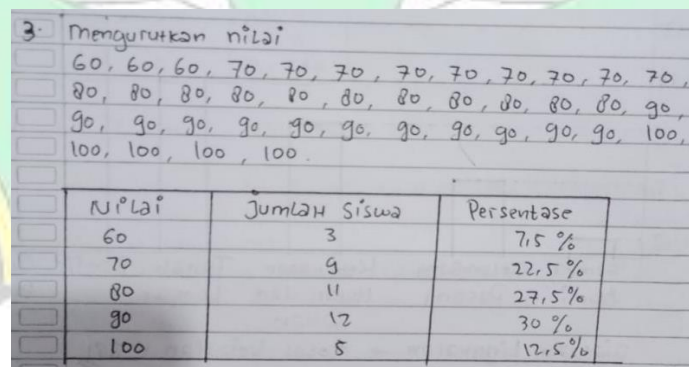 3. Mengurutkan nilai
60, 60, 60, 70, 70, 70, 70, 70, 70, 70, 70, 70,
80, 80, 80, 80, 80, 80, 80, 80, 80, 80, 80, 90,
90, 90, 90, 90, 90, 90, 90, 90, 90, 90, 90, 100,
100, 100, 100, 100.
Nilai Jumlah Siswa Persentase
60 3 7,5 %
70 9 22,5 %
80 11 27,5 %
90 12 30 %
100 5 12,5 %